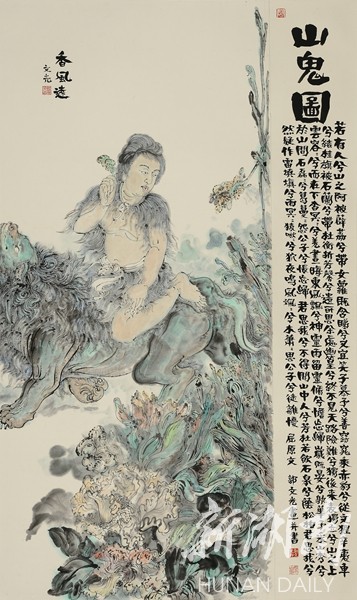 山鬼圖
若有人兮山之阿被薜荔兮帶女蘿既含睇兮又宜笑子慕予兮善窈窕乘赤豹兮從文狸辛夷車
兮結桂旗被石蘭兮帶杜衡折芳馨兮遺所思余處幽篁兮終不見天路險難兮獨後來表獨立兮山之上
雲容〻兮而在下杳冥〻兮羌晝晦東風飄兮神靈雨留靈脩兮憺忘歸歲既晏兮孰華予采三秀兮
於山間石磊〻兮葛蔓〻怨公子兮悵忘歸君思我兮不得閒山中人兮芳杜若飲石泉兮蔭松柏君思我兮
然疑作雷填〻兮雨冥〻猨啾〻兮狖夜鳴風颯〻兮木蕭〻思公子兮徒離憂 屈原文
香風遠
新湖南
HUNAN DAILY